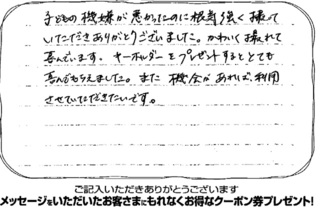 子どもの機嫌が悪かったのに根気強く撮って
いただきありがとうございました。かわいく撮れて
喜んでいます。キーホルダーをプレゼントするととても
喜んでもらえました。また機会があれば、利用
させていただきたいです。
ご記入いただきありがとうございます
メッセージをいただいたお客さまにもれなくお得なクーポン券プレゼント!